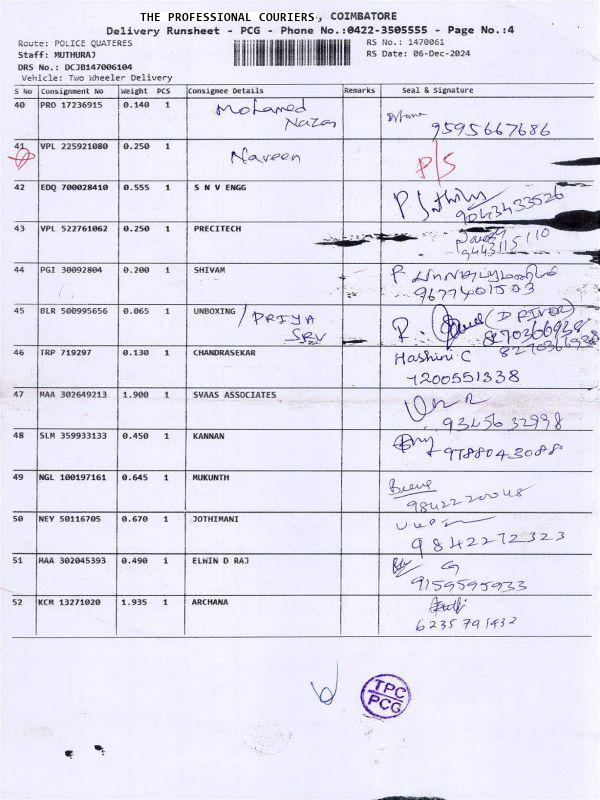 THE PROFESSIONAL COURIERS, COIMBATORE
Delivery Runsheet - PCG - Phone No.:0422-3505555 - Page No.:4
Route: POLICE QUATERES
RS No.: 1470061
Staff: MUTHURAJ
RS Date: 06-Dec-2024
DRS No.: DCJB147006104
Vehicle: Two Wheeler Delivery
S No Consignment No Weight PCS Consignee Details Remarks Seal & Signature
40 PRO 17236915 0.140 1 Mohamed Nazar
9595667686
41 VPL 225921080 0.250 1 Naveen P/S
42 EDQ 700028410 0.555 1 S N V ENGG
9043433526
43 VPL 522761062 0.250 1 PRECITECH
9443115110
44 PGI 30092804 0.200 1 SHIVAM
9677401503
45 BLR 500995656 0.065 1 UNBOXING / PRIYA SRV (DRIVER)
8270366928
46 TRP 719297 0.130 1 CHANDRASEKAR Hashini C 8270366938
7200551338
47 MAA 302649213 1.900 1 SVAAS ASSOCIATES
9345632998
48 SLM 359933133 0.450 1 KANNAN
9788043088
49 NGL 100197161 0.645 1 MUKUNTH
9842220048
50 NEY 50116705 0.670 1 JOTHIMANI
9842272323
51 MAA 302045393 0.490 1 ELWIN D RAJ
9159595933
52 KCM 13271020 1.935 1 ARCHANA
6235791432
TPC
PCG